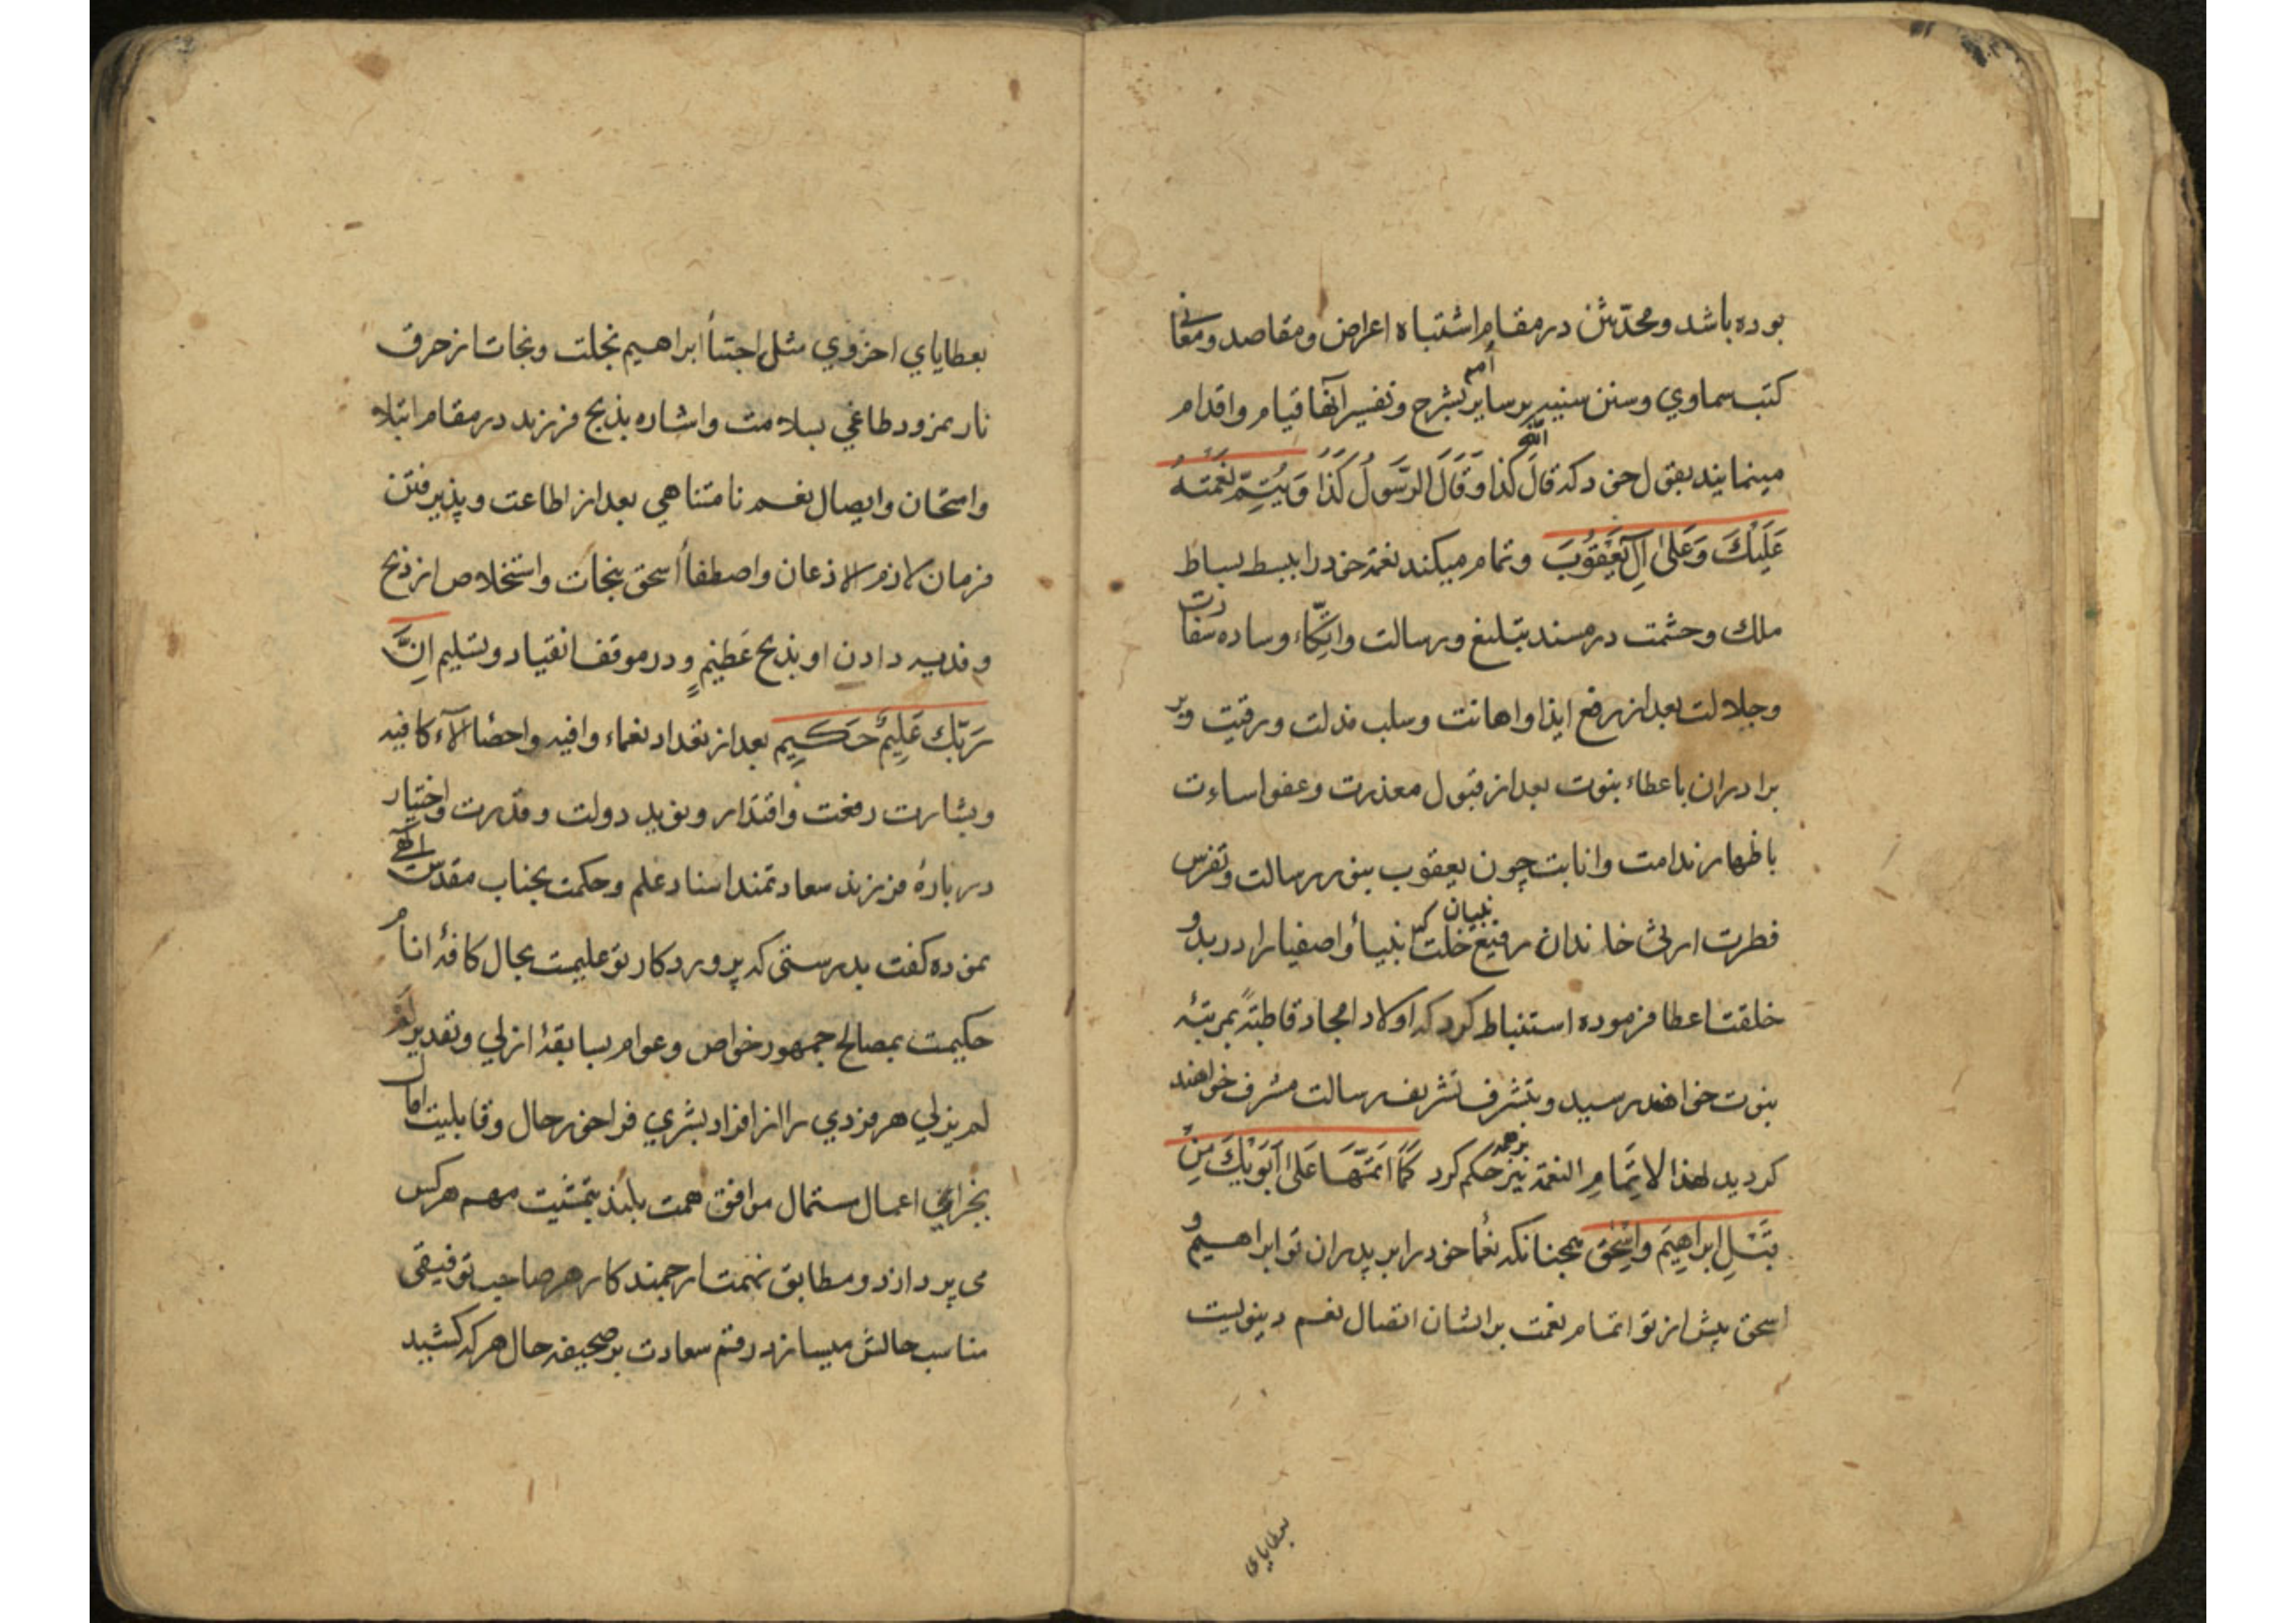 بوده باشد و محدّثین در مقام اشتباه اعراض و مقاصد و معانی
کتب سماوي و سنن سنیه بر سایر امم بشرح و تفسیر آنها قیام و اقدام
مینمایند بقول خود که قَالَ اللّٰه کَذا وَ قَالَ الرَّسُولُ کَذَا وَيُتِمُّ نِعْمَتَهُ
عَلَيْكَ وَعَلىٰ آلِ يَعْقُوبَ و تمام میکند نعمة خود را ببسط بساط
ملك و حشمت در مسند تبلیغ و رسالت و اتّکاء وساده سفارت
و جلالت بعد از رفع ایذا و اهانت و سلب مذلت و رقیت و بر
برادران باعطاء نبوت بعد از قبول معذرت و عفو اساءت
باظهار ندامت و انابت چون یعقوب بنور رسالت و تفرس
فطرت ارث خاندان رفیع بنیان خلت که انبیأ و اصفیا را در بدو
خلقت اعطا فرموده استنباط کرد که اولاد امجاد قاطبتهً بمرتبهٔ
نبوت خواهند رسید و بتشرف تشریف رسالت مشرف خواهند
کردید لهذا لاتِمَامِ النعمة نیز بر همه حکم کرد كَمَا اَتَمَّهَا عَلىٰ اَبَوَيْكَ مِنْ
قَبْلِ ابراهِيمَ وَاسْحٰقَ همچنانکه نعمأ خود را بر پدران تو ابراهیم و
اسحق پیش از تو اتمام نعمت بر ایشان اتصال نعم دینویست
بعطایای
بعطایاي اخروي مثل اجتبأ ابراهیم بخلت و نجات از حرق
نار نمرود طاغي بسلامت و اشاره بذبح فرزند در مقام ابتلا
و امتحان و ایصال نعم نامتناهي بعد از اطاعت و پذیرفتن
فرمان لازم الاذعان و اصطفأ اسحق بنجات و استخلاص از ذبح
و فدیه دادن او بذبح عَظيمٍ و در موقف انقیاد و تسلیم اِنَّ
رَبَّكَ عَلِيمٌ حَكِيمٌ بعد از تعداد نعماء وافیه و احصا الآء کافیه
و بشارت رفعت و اقتدار و نوید دولت و قدرت و اختیار
در بارهٔ فرزند سعادتمند اسناد علم و حکمت بجناب مقدس الهی
نموده کفت بدرستی که پروردکار تو علیمت بحال کافهٔ انام و
حکیمت بمصالح جمهور خواص و عوام بسابقهٔ ازلي و تقدیر
لم یزلي هر فردي را از افراد بشري فراخور حال و قابلیت
اعمال مستمال موافق همت بلند بتمشیت مهم هرکس
می پردازد و مطابق نهمت ارجمند کار هر صاحب توفیقی
مناسب حالش میسازد رقم سعادت بر صحیفه حال هر که کشید